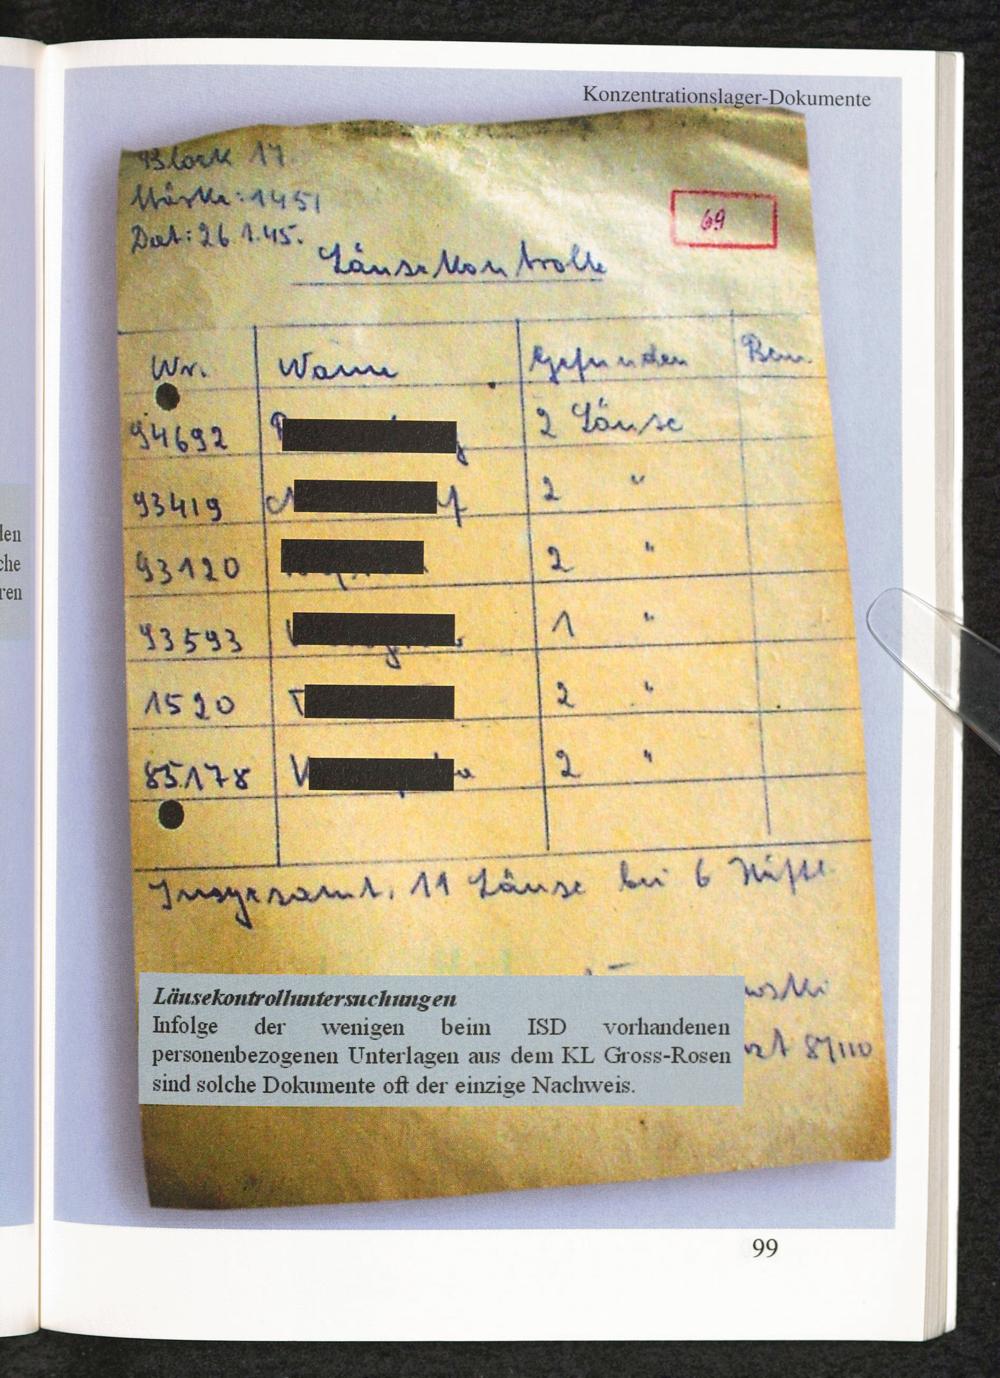 Konzentrationslager-Dokumente
Block 17.
Stärke: 1451
Dat: 26.1.45.
69
Läusekontrolle
Nr. Name Gefunden Bem.
94692 2 Läuse
93419 2 "
93120 2 "
93593 1 "
1520 2 "
85178 2 "
Insgesamt. 11 Läuse bei 6 Häftl.
wski
Läusekontrolluntersuchungen
Infolge der wenigen beim ISD vorhandenen
personenbezogenen Unterlagen aus dem KL Gross-Rosen
sind solche Dokumente oft der einzige Nachweis.
99
den
che
ren